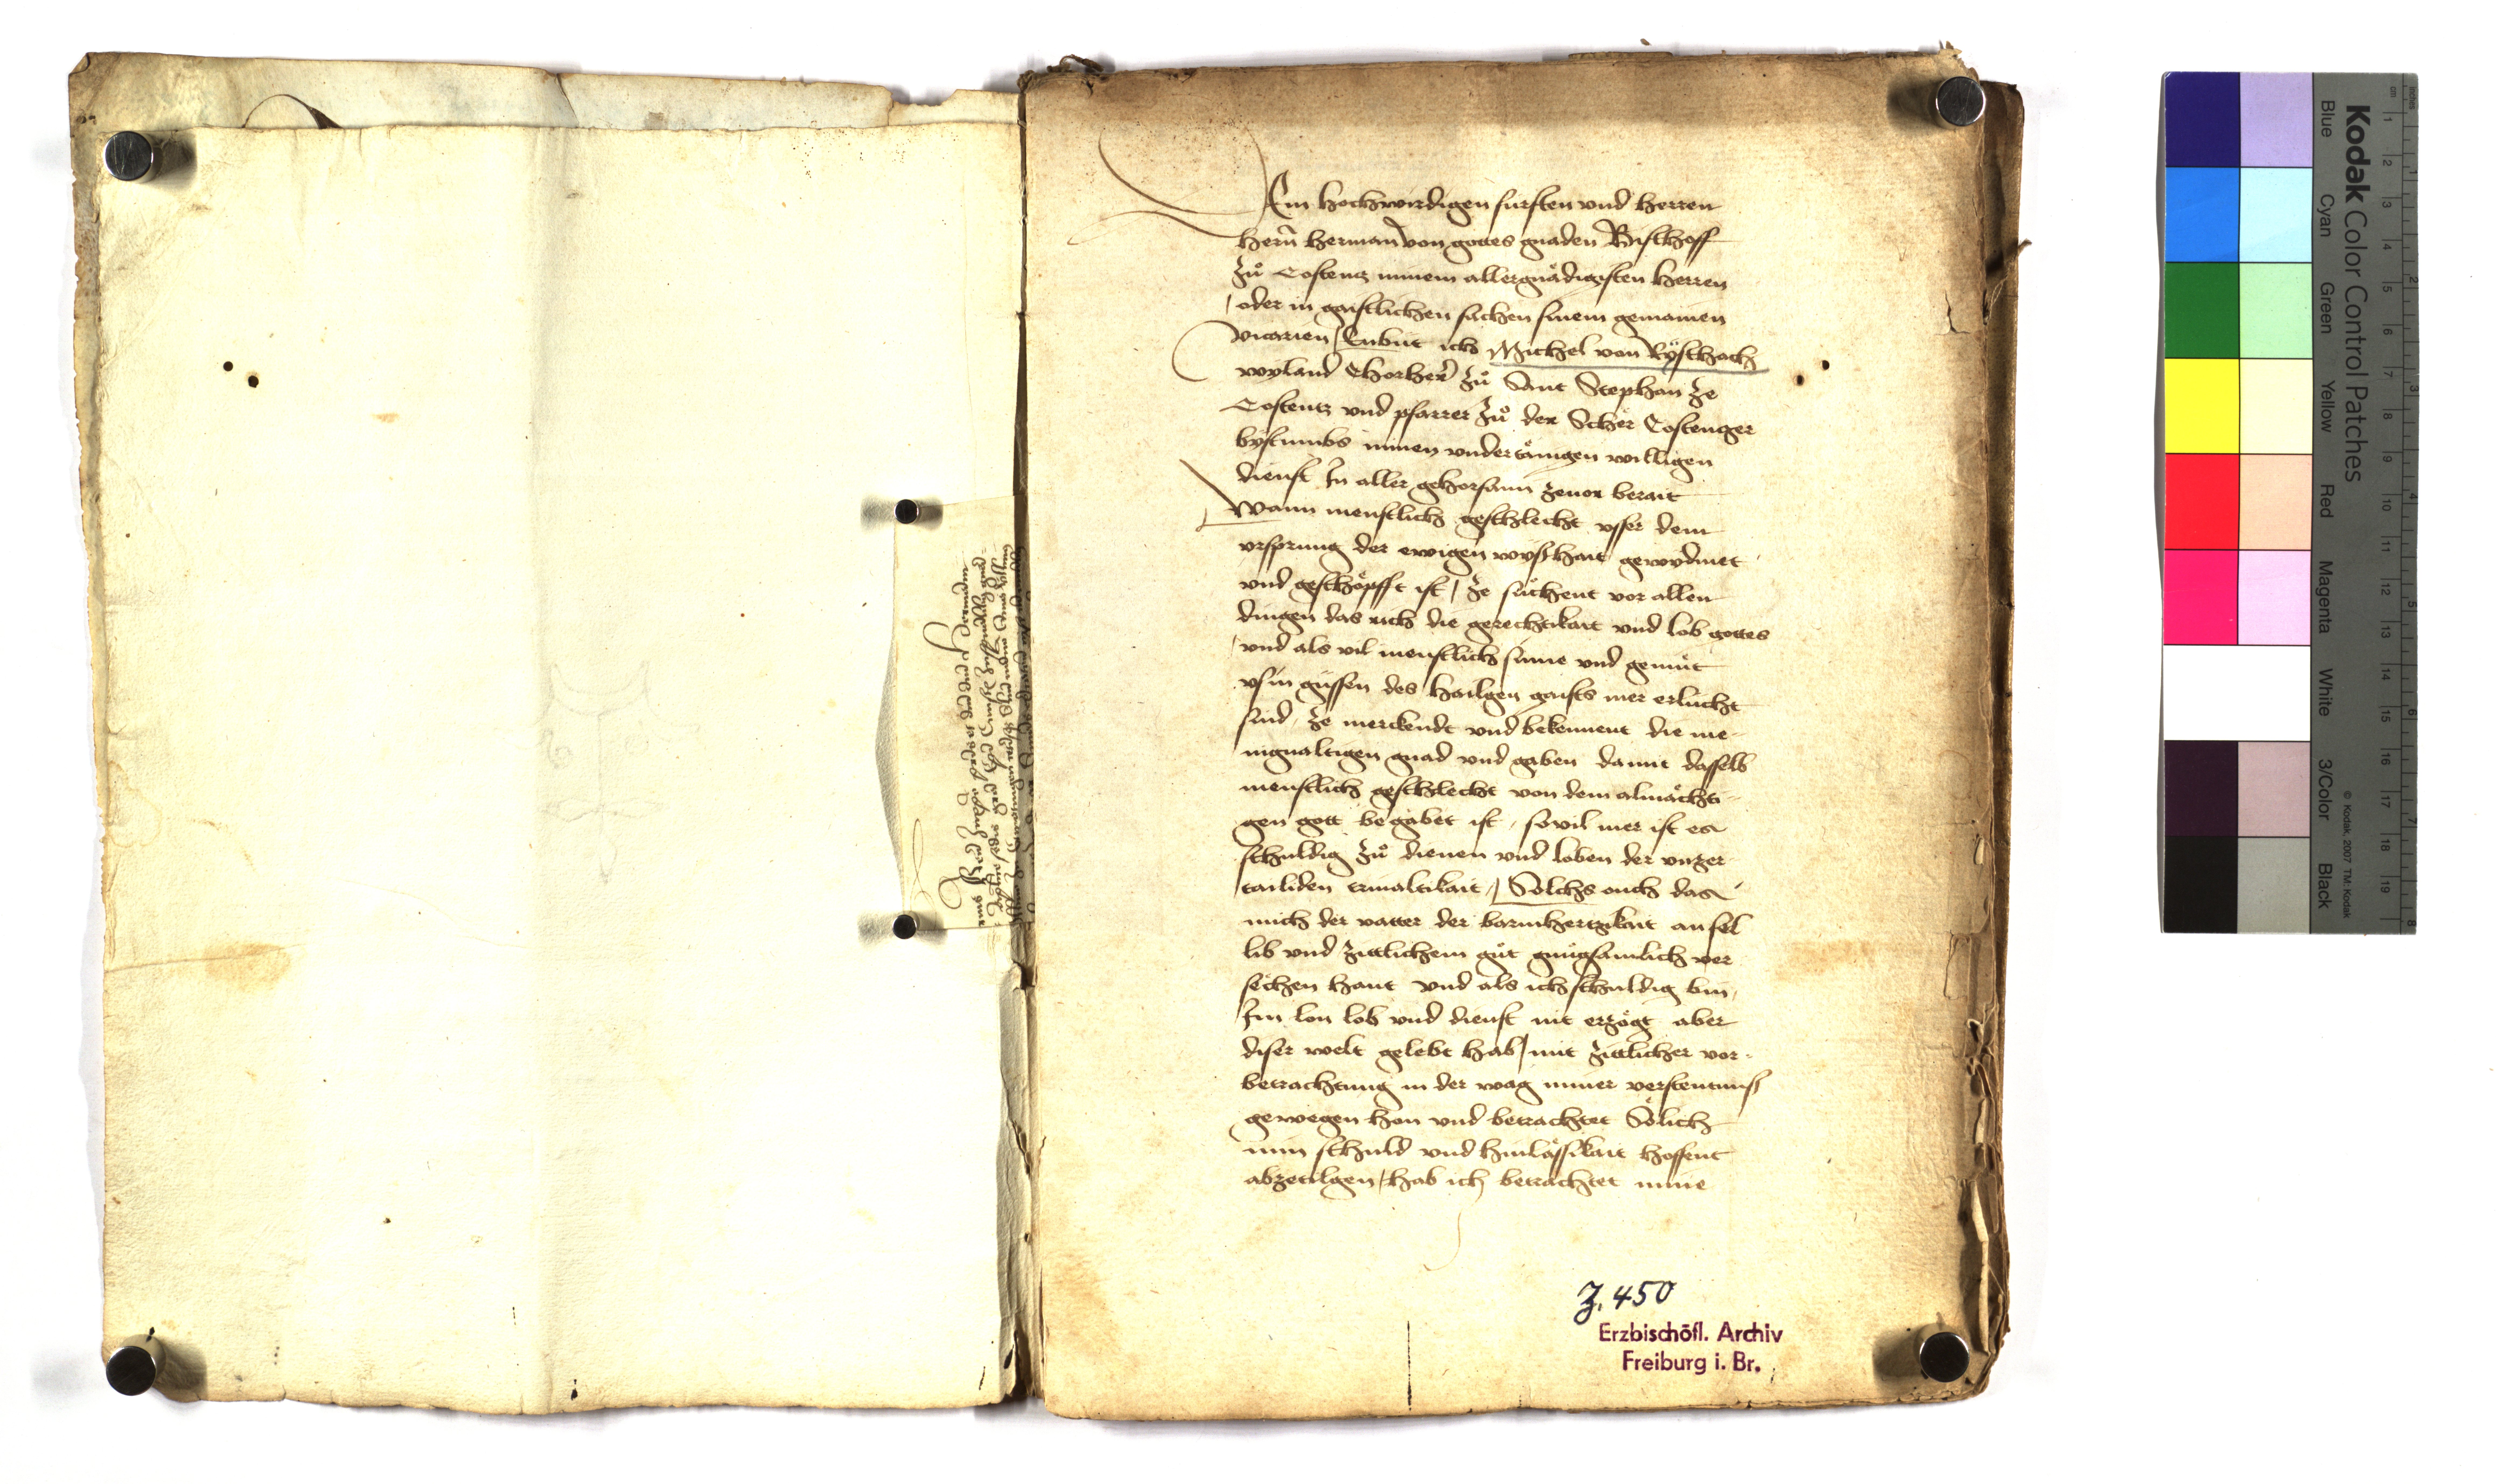 Em hochwirdigen fursten vnd herren
hern herman von gottes gnaden Bischoff
zů Costentz minem allergnädigisten herren
oder in gaistlichen sachen sinem gemainen
vicarien / Enbüt ich Michel von Ryschach
wyland Chorher zů Sant Stephan ze
Costentz vnd pfarrer zů der Scher Costentzer
bystumbs minen vndertänigen willigen
dienst In aller gehorsami zeuor berait
Wann menschlich geschlecht vsser dem
vrsprung der ewigen wyshait gewydmet
vnd geschöpfft ist / ze süchent vor allen
dingen das rich die gerechtikait vnd lob gottes
vnd als vil menschlich sinne vnd gemüt
vs in güssen des hailgen gaists mer erlücht
sind / ze merckendt vnd bekennent die me-
nigualtigen gnad vnd gaben damit dasselb
menschlich geschlecht von dem almächti-
gen gott begabet ist / souil mer ist es
schuldig zů dienen vnd loben der vnzer-
tailiden triualtikait / Sölchs ouch das
mich der vatter der barmhertzikait an sel
lib vnd zittlichem gůt gnügsamlich ver
sechen haut vnd als ich schuldig bin
Im lon lob vnd dienst nit erzögt aber
diser welt gelebt hab / mit zittlicher vor-
betrachtung in der wag miner verstentnuss
gewegen hon vnd betrachtet Sölich
min schuld vnd hinlässikait hoffent
abzetilgen / hab ich betrachtet mine
Z. 450
Erzbischöfl. Archiv
Freiburg i. Br.
Kodak Color Control Patches
Blue Cyan Green Yellow Red Magenta White 3/Color Black
© Kodak, 2007 TM: Kodak
inches 1 2 3 4 5 6 7 8
cm 1 2 3 4 5 6 7 8 9 10 11 12 13 14 15 16 17 18 19